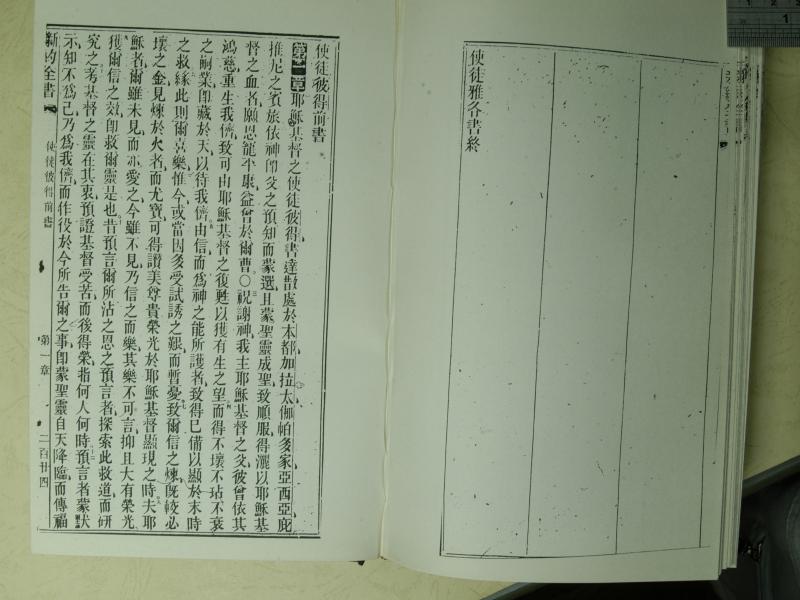 使徒雅各書終
使徒彼得前書
第一章耶穌基督之使徒彼得書達散處於本都加拉太伽帕多家亞西亞庇
推尼之賓旅依神卽父之預知而蒙選且蒙聖靈成聖致順服得灑以耶穌基
督之血者願恩寵平康益增於爾曹○祝謝神我主耶穌基督之父彼曾依其
鴻慈重生我儕致可由耶穌基督之復甦以獲有生之望而得不壞不玷不衰
之嗣業卽藏於天以待我儕由信而爲神之能所護者致得已備以顯於末時
之救緣此則爾喜樂惟今或當因多受試誘之艱而暫憂致爾信之煉旣較必
壞之金見煉於火者而尤寶可得讚美尊貴榮光於耶穌基督顯現之時夫耶
穌者爾雖未見而亦愛之今雖不見乃信之而樂其樂不可言抑且大有榮光
獲爾信之效卽救爾靈是也昔預言爾所沾之恩之預言者探索此救道而研
究之考基督之靈在其衷預證基督受苦而後得榮指何人何時預言者蒙默
示知不爲己乃爲我儕而作役於今所告爾之事卽蒙聖靈自天降臨而傳福
新約全書
使徒彼得前書
第一章
二百廿四